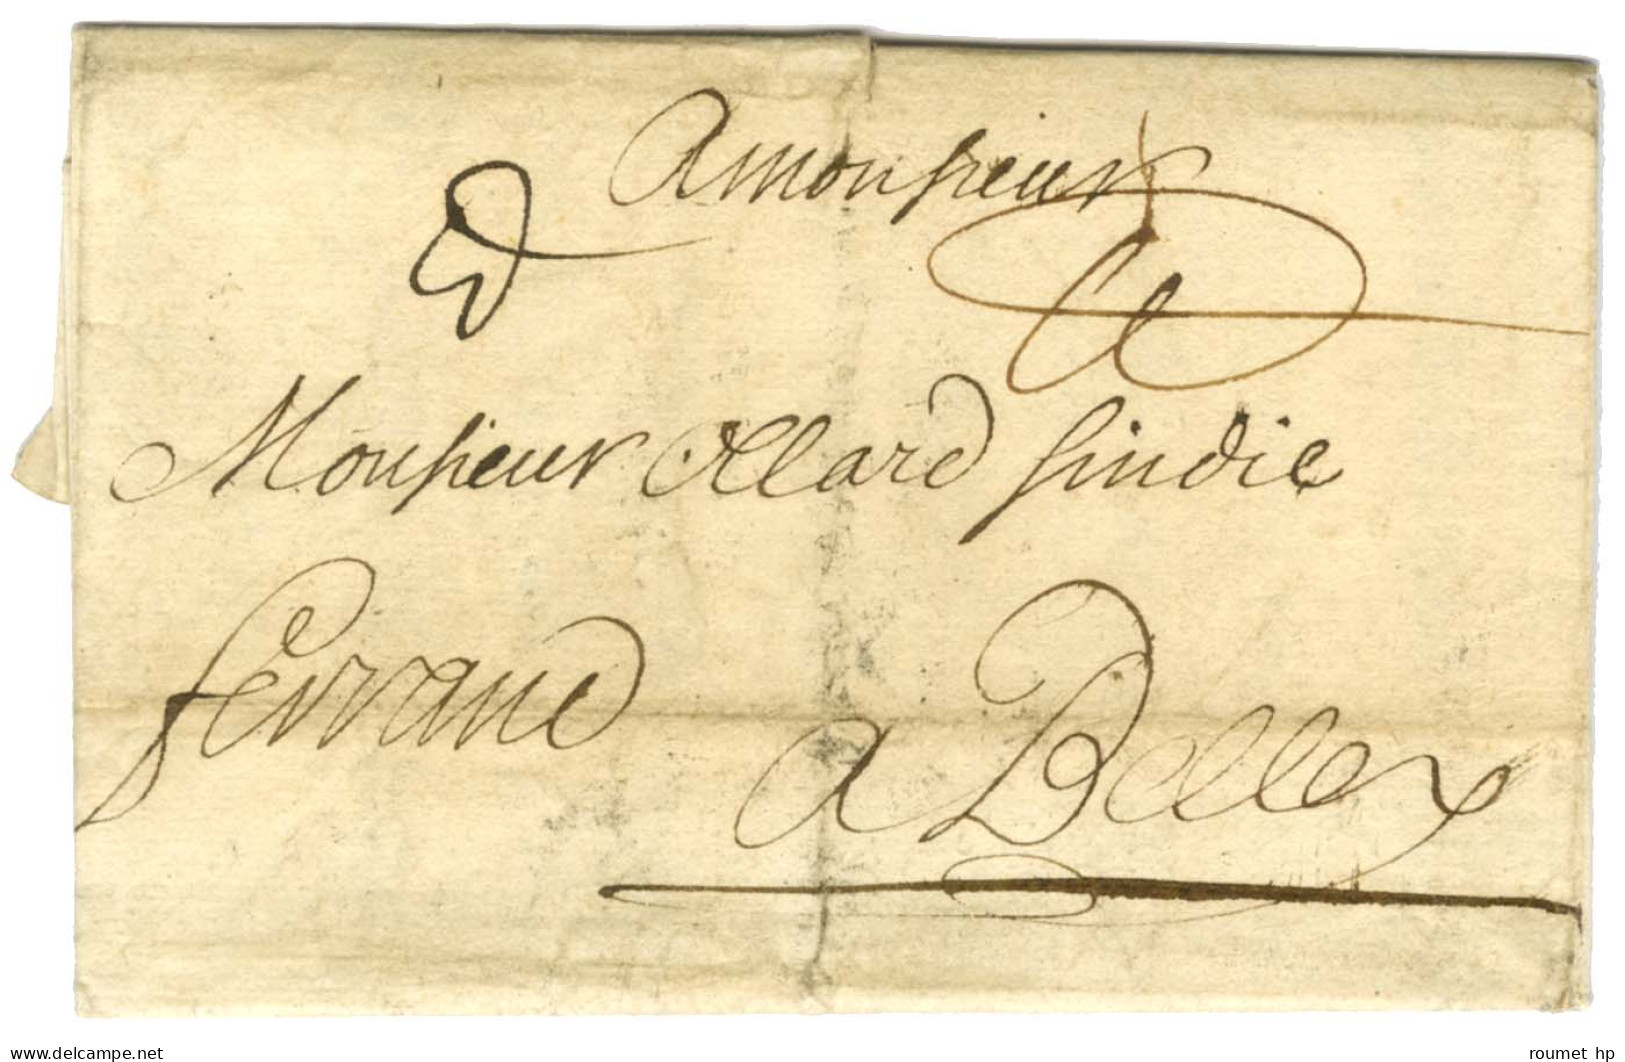 Amonsieur
Monsieur Allard sindic
ferrand
a Belley
www.delcampe.net
roumet hp